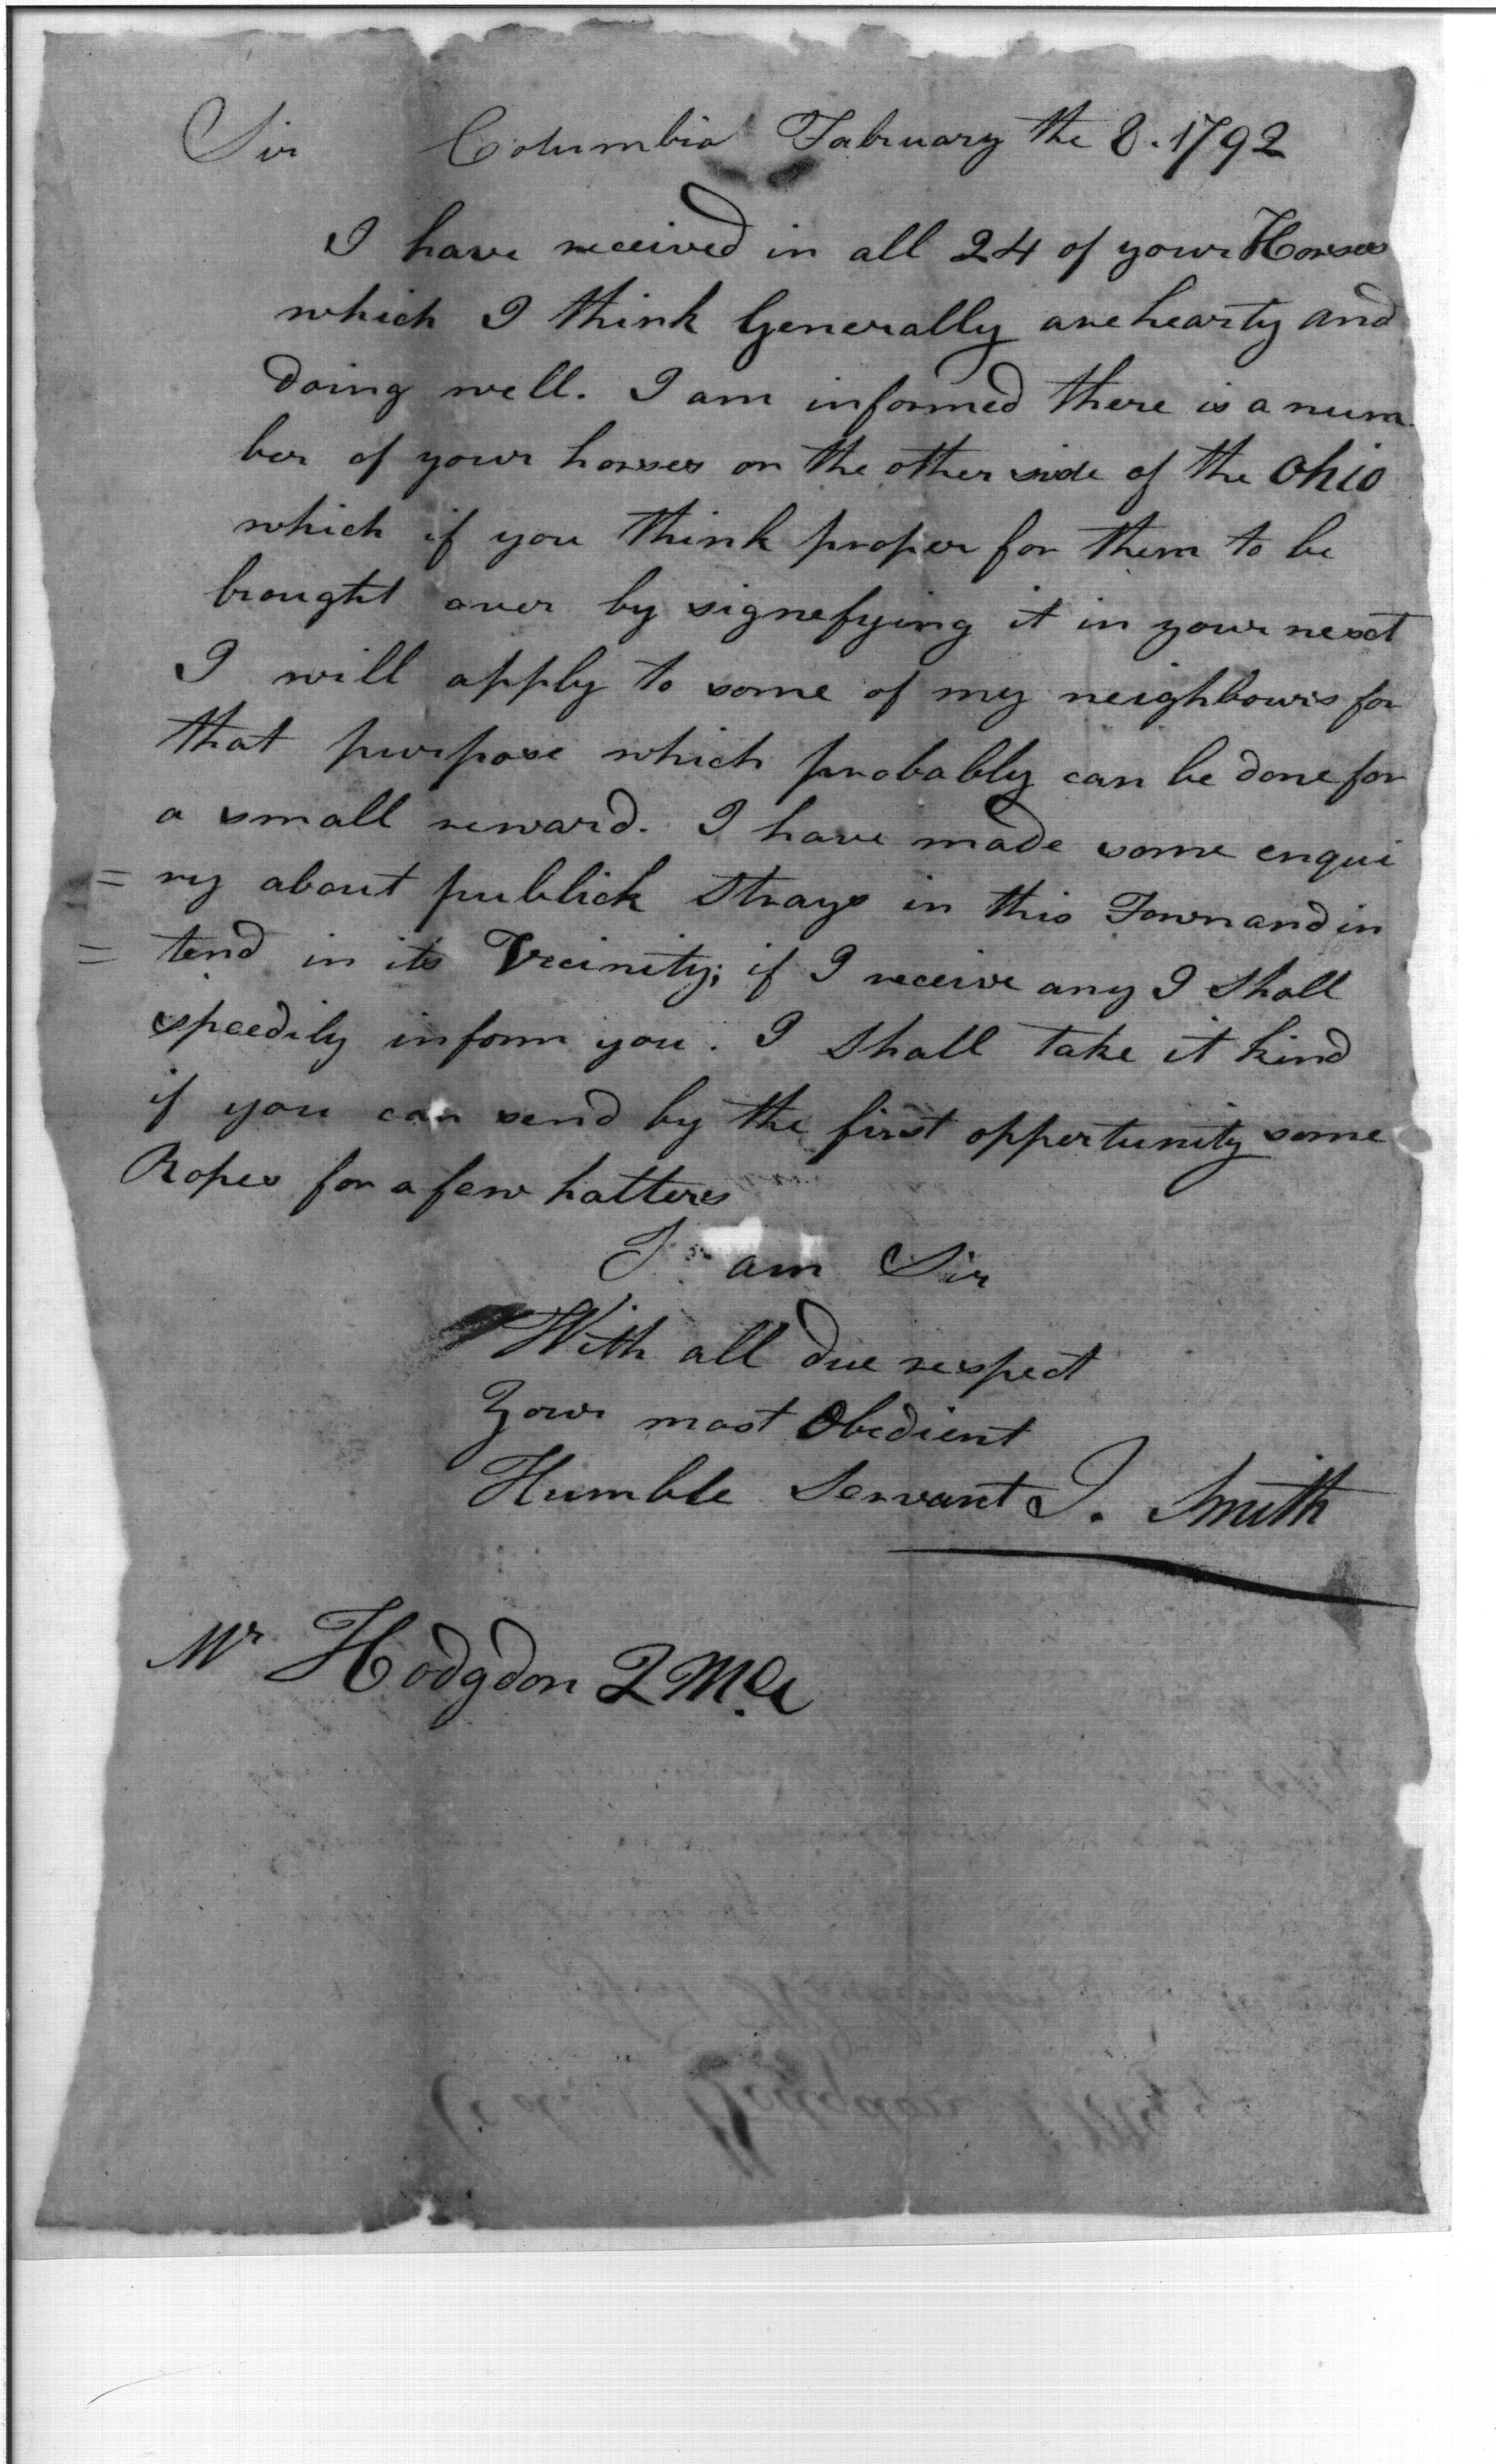 Sir Columbia Fabruary the 8. 1792
I have received in all 24 of your Horses
which I think Generally are hearty and
doing well. I am informed there is a num
ber of your horses on the other side of the Ohio
which if you think proper for them to be
brought over by signefying it in your next
I will apply to some of my neighbours for
that purpose which probably can be done for
a small reward. I have made some enqui
= ry about publick Strays in this Town and in
= tend in its Vicinity; if I receive any I Shall
speedily inform you. I Shall take it kind
if you can send by the first oppertunity some
Ropes for a few halters
I am Sir
With all due respect
Your most Obedient
Humble Servant J. Smith
Mr Hodgdon